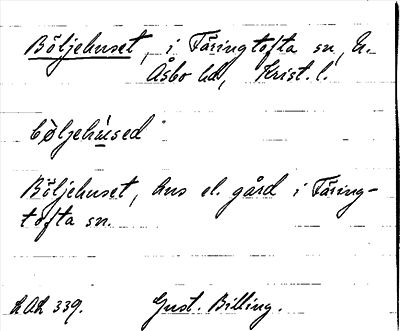 Böljehuset, i Färingtofta sn, N.
Åsbo hd, Krist. l.
bøljehúsed
Böljehuset, hus el. gård i Färing-
tofta sn.
LAL 339. Gust. Billing.